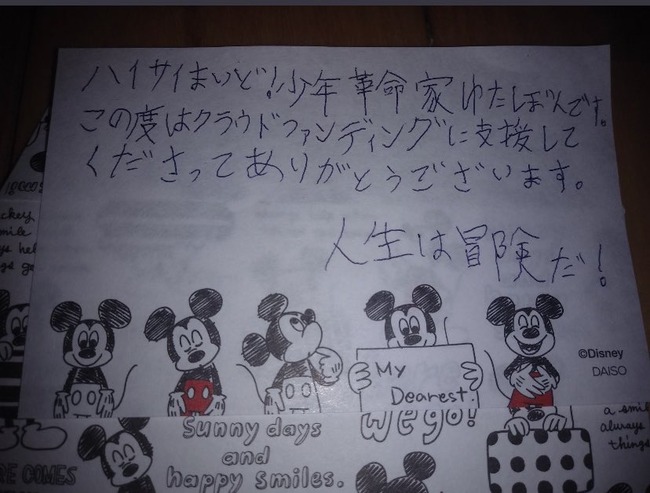 ハイサイまいど！少年革命家ゆたぼんです。
この度はクラウドファンディングに支援して
くださってありがとうございます。
人生は冒険だ！
©Disney
DAISO
My
Dearest.
wego!
Sunny days
and
happy smiles.
a smile
always
things
COMES